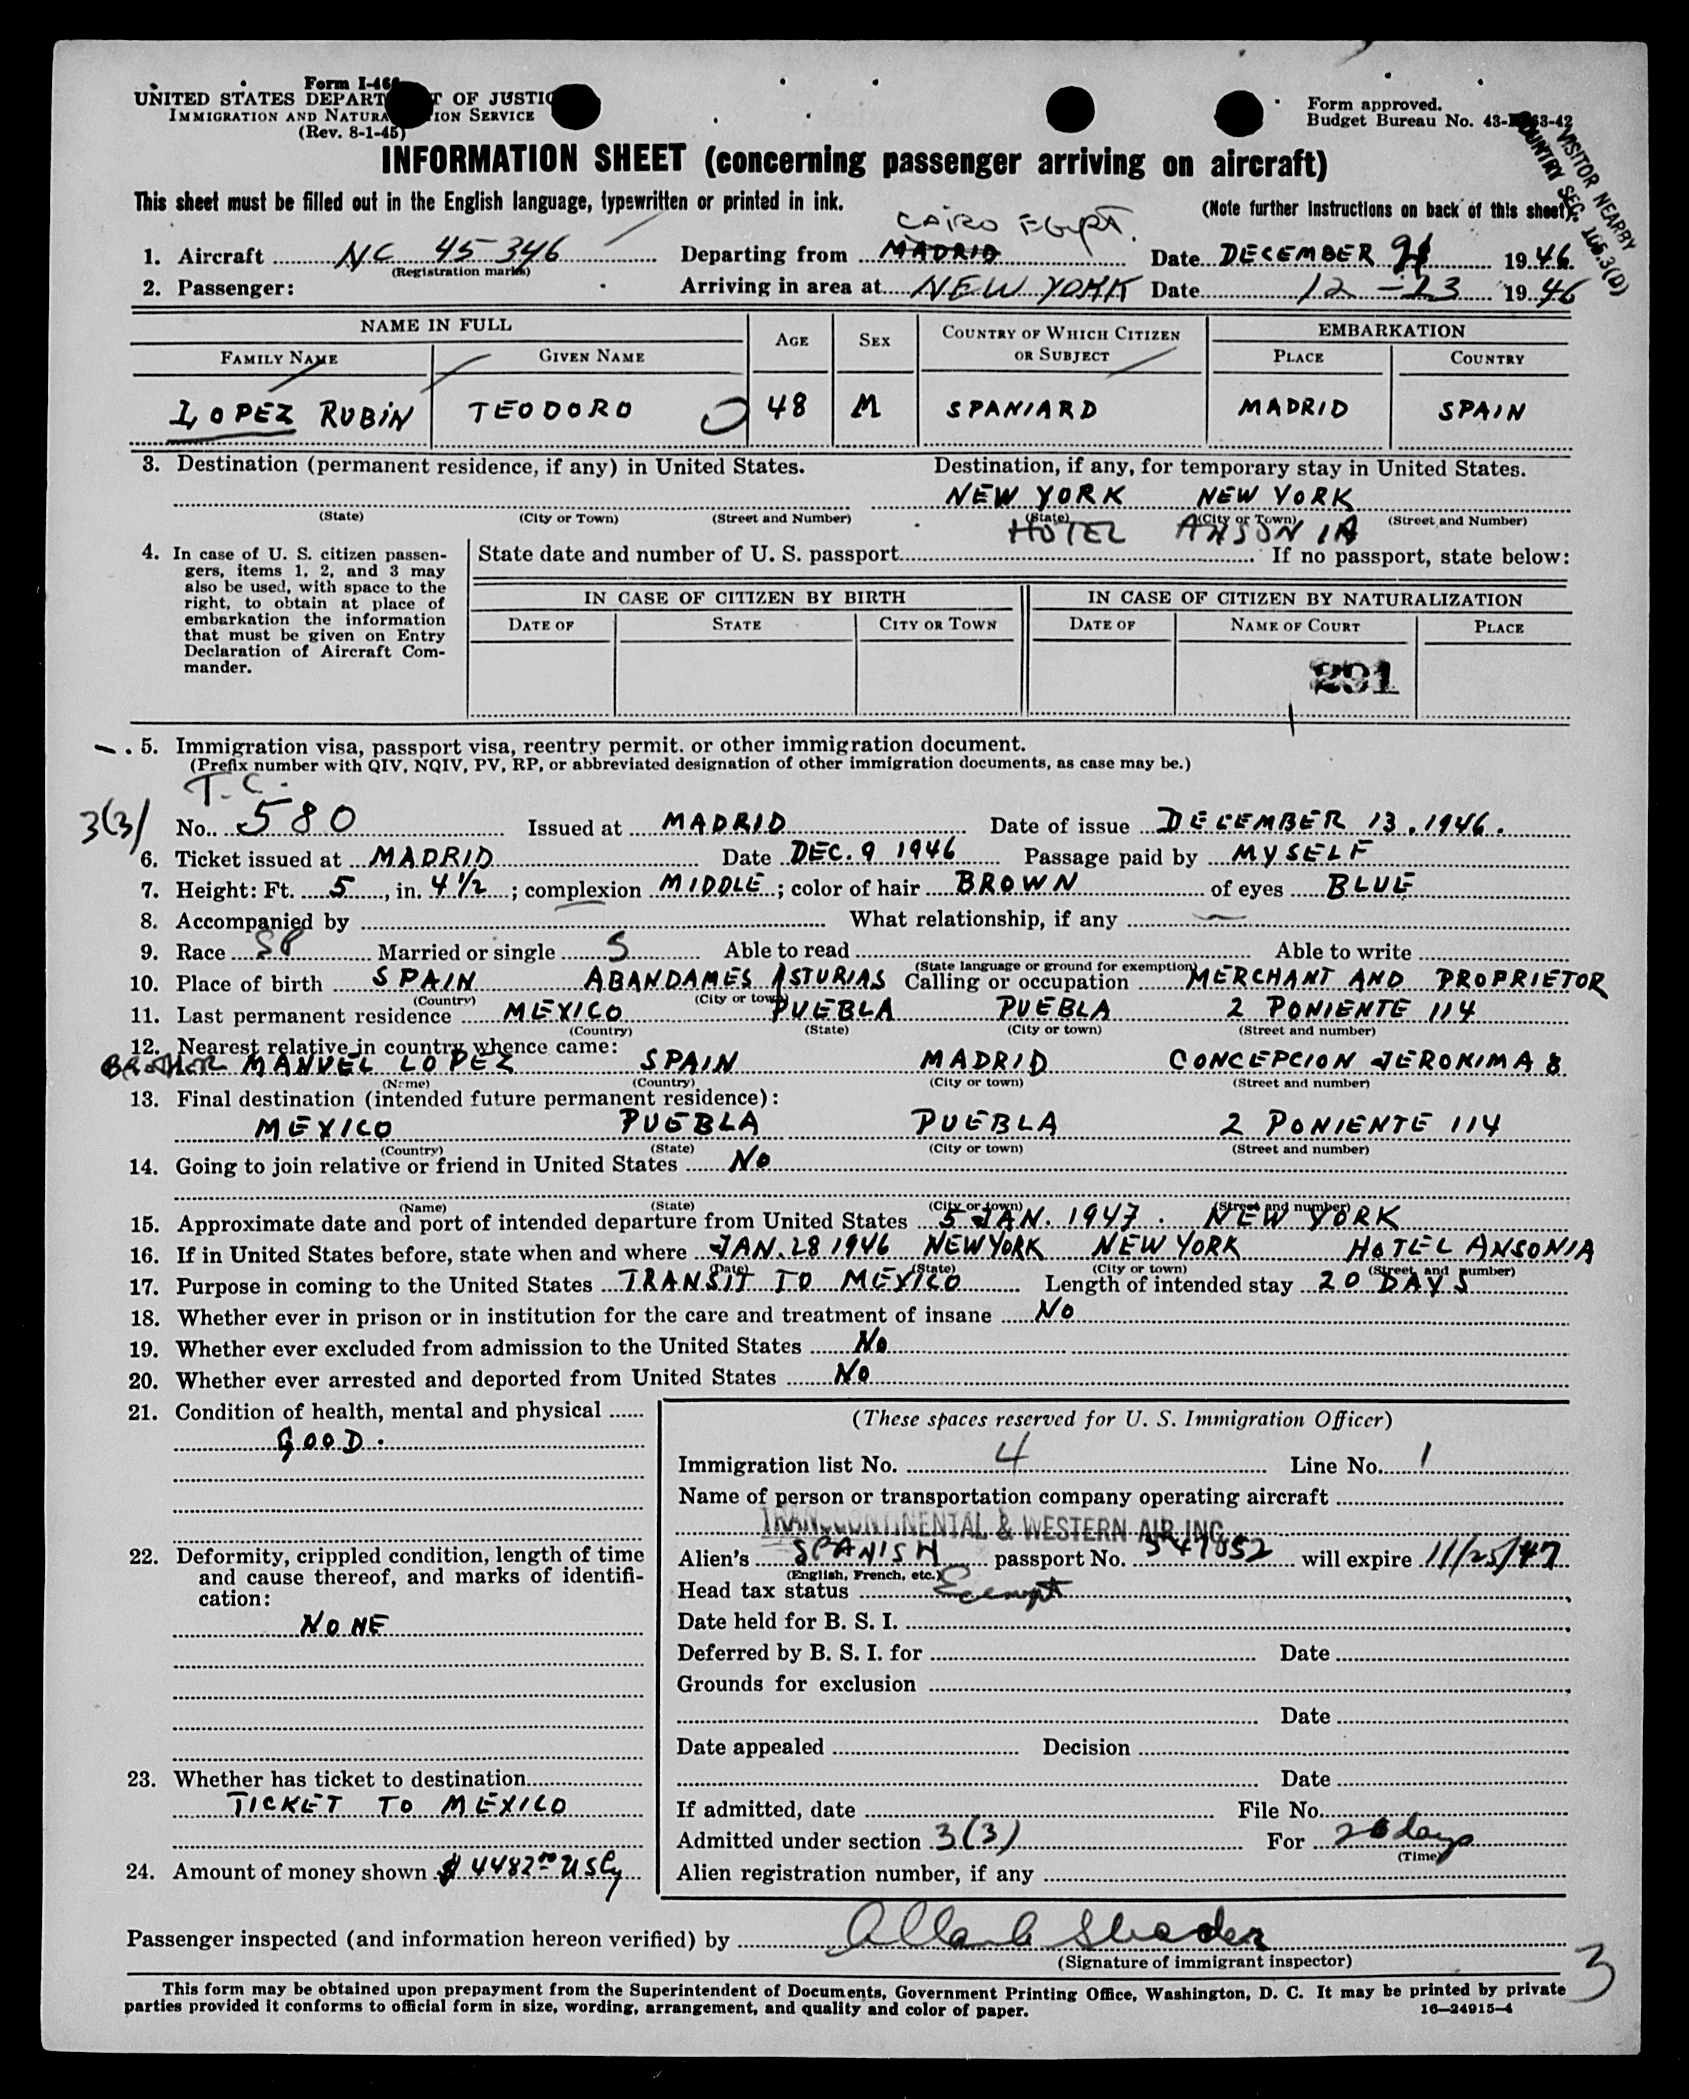 Form I-466
UNITED STATES DEPARTMENT OF JUSTICE
IMMIGRATION AND NATURALIZATION SERVICE
(Rev. 8-1-45)
Form approved.
Budget Bureau No. 43-R063-42
VISITOR NEARBY
COUNTRY SEC. 165.3(D)
INFORMATION SHEET (concerning passenger arriving on aircraft)
This sheet must be filled out in the English language, typewritten or printed in ink.
(Note further instructions on back of this sheet)
CAIRO EGYPT.
1. Aircraft NC 45346 Departing from MADRID Date DECEMBER 1946.
(Registration marks)
2. Passenger: Arriving in area at NEW YORK Date 12-23 1946
NAME IN FULL AGE SEX COUNTRY OF WHICH CITIZEN OR SUBJECT EMBARKATION
FAMILY NAME GIVEN NAME PLACE COUNTRY
LOPEZ RUBIN TEODORO 48 M SPANIARD MADRID SPAIN
3. Destination (permanent residence, if any) in United States. Destination, if any, for temporary stay in United States.
NEW YORK NEW YORK
(State) (City or Town) (Street and Number) (State) (City or Town) (Street and Number)
HOTEL ANSONIA
4. In case of U. S. citizen passengers, items 1, 2, and 3 may also be used, with space to the right, to obtain at place of embarkation the information that must be given on Entry Declaration of Aircraft Commander.
State date and number of U. S. passport If no passport, state below:
IN CASE OF CITIZEN BY BIRTH IN CASE OF CITIZEN BY NATURALIZATION
DATE OF STATE CITY OR TOWN DATE OF NAME OF COURT PLACE
291
5. Immigration visa, passport visa, reentry permit. or other immigration document.
(Prefix number with QIV, NQIV, PV, RP, or abbreviated designation of other immigration documents, as case may be.)
T.C.
3(3) No. 580 Issued at MADRID Date of issue DECEMBER 13, 1946.
6. Ticket issued at MADRID Date DEC. 9 1946 Passage paid by MYSELF
7. Height: Ft. 5, in. 4 1/2; complexion MIDDLE; color of hair BROWN of eyes BLUE
8. Accompanied by What relationship, if any —
9. Race SP Married or single S Able to read Able to write
(State language or ground for exemption)
10. Place of birth SPAIN ABANDAMES ASTURIAS Calling or occupation MERCHANT AND PROPRIETOR
(Country) (City or town)
11. Last permanent residence MEXICO PUEBLA PUEBLA 2 PONIENTE 114
(Country) (State) (City or town) (Street and number)
12. Nearest relative in country whence came:
BROTHER MANUEL LOPEZ SPAIN MADRID CONCEPCION JERONIMA 8
(Name) (Country) (City or town) (Street and number)
13. Final destination (intended future permanent residence):
MEXICO PUEBLA PUEBLA 2 PONIENTE 114
(Country) (State) (City or town) (Street and number)
14. Going to join relative or friend in United States NO
(Name) (State) (City or town) (Street and number)
15. Approximate date and port of intended departure from United States 5 JAN. 1947. NEW YORK
16. If in United States before, state when and where JAN. 28 1946 NEW YORK NEW YORK HOTEL ANSONIA
(Date) (State) (City or town) (Street and number)
17. Purpose in coming to the United States TRANSIT TO MEXICO Length of intended stay 20 DAYS
18. Whether ever in prison or in institution for the care and treatment of insane NO
19. Whether ever excluded from admission to the United States NO
20. Whether ever arrested and deported from United States NO
21. Condition of health, mental and physical
GOOD.
22. Deformity, crippled condition, length of time and cause thereof, and marks of identification:
NONE
23. Whether has ticket to destination
TICKET TO MEXICO
24. Amount of money shown $4482 00 US Cy
(These spaces reserved for U. S. Immigration Officer)
Immigration list No. 4 Line No. 1
Name of person or transportation company operating aircraft
TRANSCONTINENTAL & WESTERN AIR INC.
Alien's SPANISH passport No. 547852 will expire 11/25/47
(English, French, etc.)
Head tax status Exempt
Date held for B. S. I.
Deferred by B. S. I. for Date
Grounds for exclusion
Date
Date appealed Decision
Date
If admitted, date File No.
Admitted under section 3(3) For 20 days
(Time)
Alien registration number, if any
Passenger inspected (and information hereon verified) by
(Signature of immigrant inspector)
3
This form may be obtained upon prepayment from the Superintendent of Documents, Government Printing Office, Washington, D. C. It may be printed by private
parties provided it conforms to official form in size, wording, arrangement, and quality and color of paper. 16—24915-4